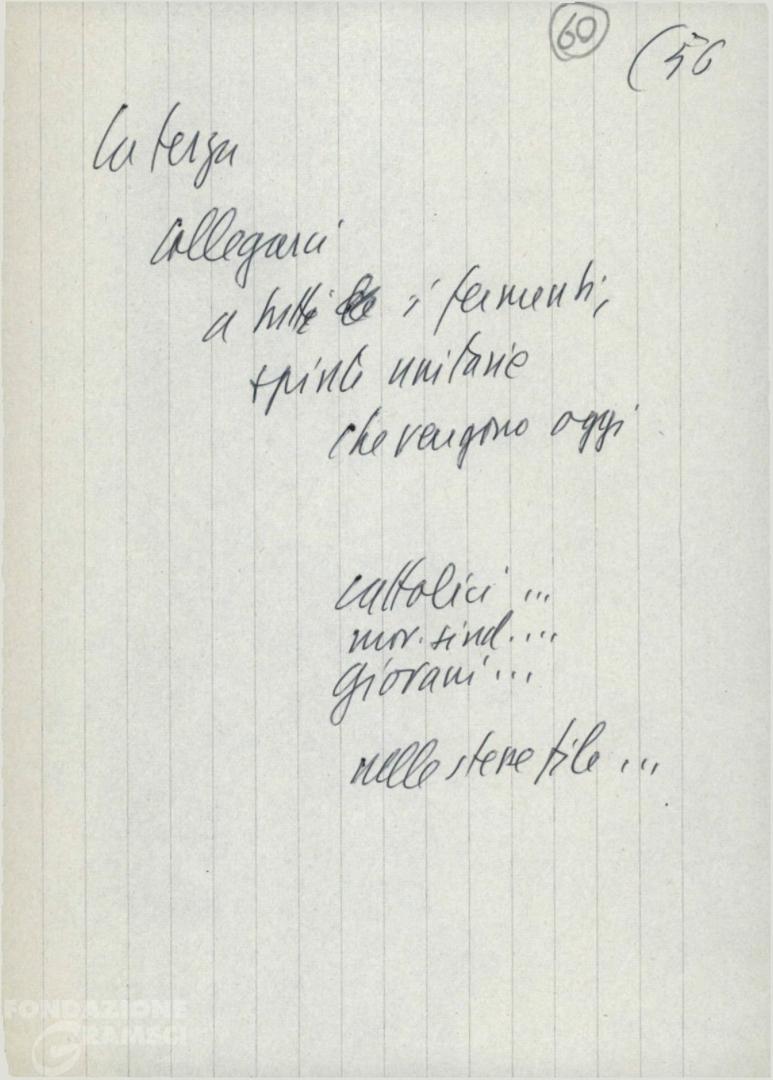 60
(56
la terza
collegarci
a tutti i fermenti,
spinte unitarie
che vengono oggi
cattolici ...
mov. sind. ...
giovani ...
nelle stesse file ...
FONDAZIONE
GRAMSCI